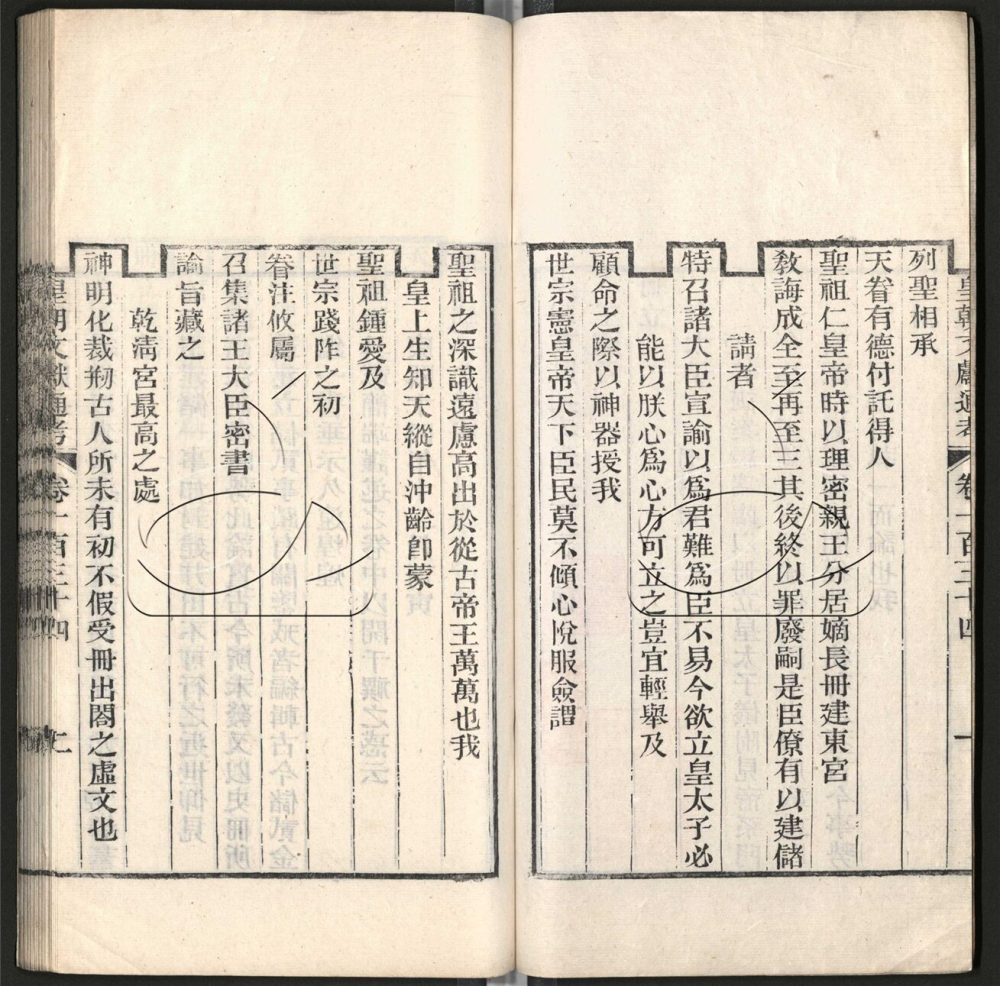 皇朝文獻通考 卷一百三十四 一
列聖相承
天眷有德付託得人
聖祖仁皇帝時以理密親王分居嫡長冊建東宮
教誨成全至再至三其後終以罪廢嗣是臣僚有以建儲
請者
特召諸大臣宣諭以為君難為臣不易今欲立皇太子必
能以朕心爲心方可立之豈宜輕舉及
顧命之際以神器授我
世宗憲皇帝天下臣民莫不傾心悅服僉謂
聖祖之深識遠慮高出於從古帝王萬萬也我
皇上生知天縱自沖齡卽蒙
聖祖鍾愛及
世宗踐阼之初
眷注攸屬
召集諸王大臣密書
諭旨藏之
乾淸宮最高之處
神明化裁剏古人所未有初不假受冊出閣之虛文也
皇朝文獻通考 卷一百三十四